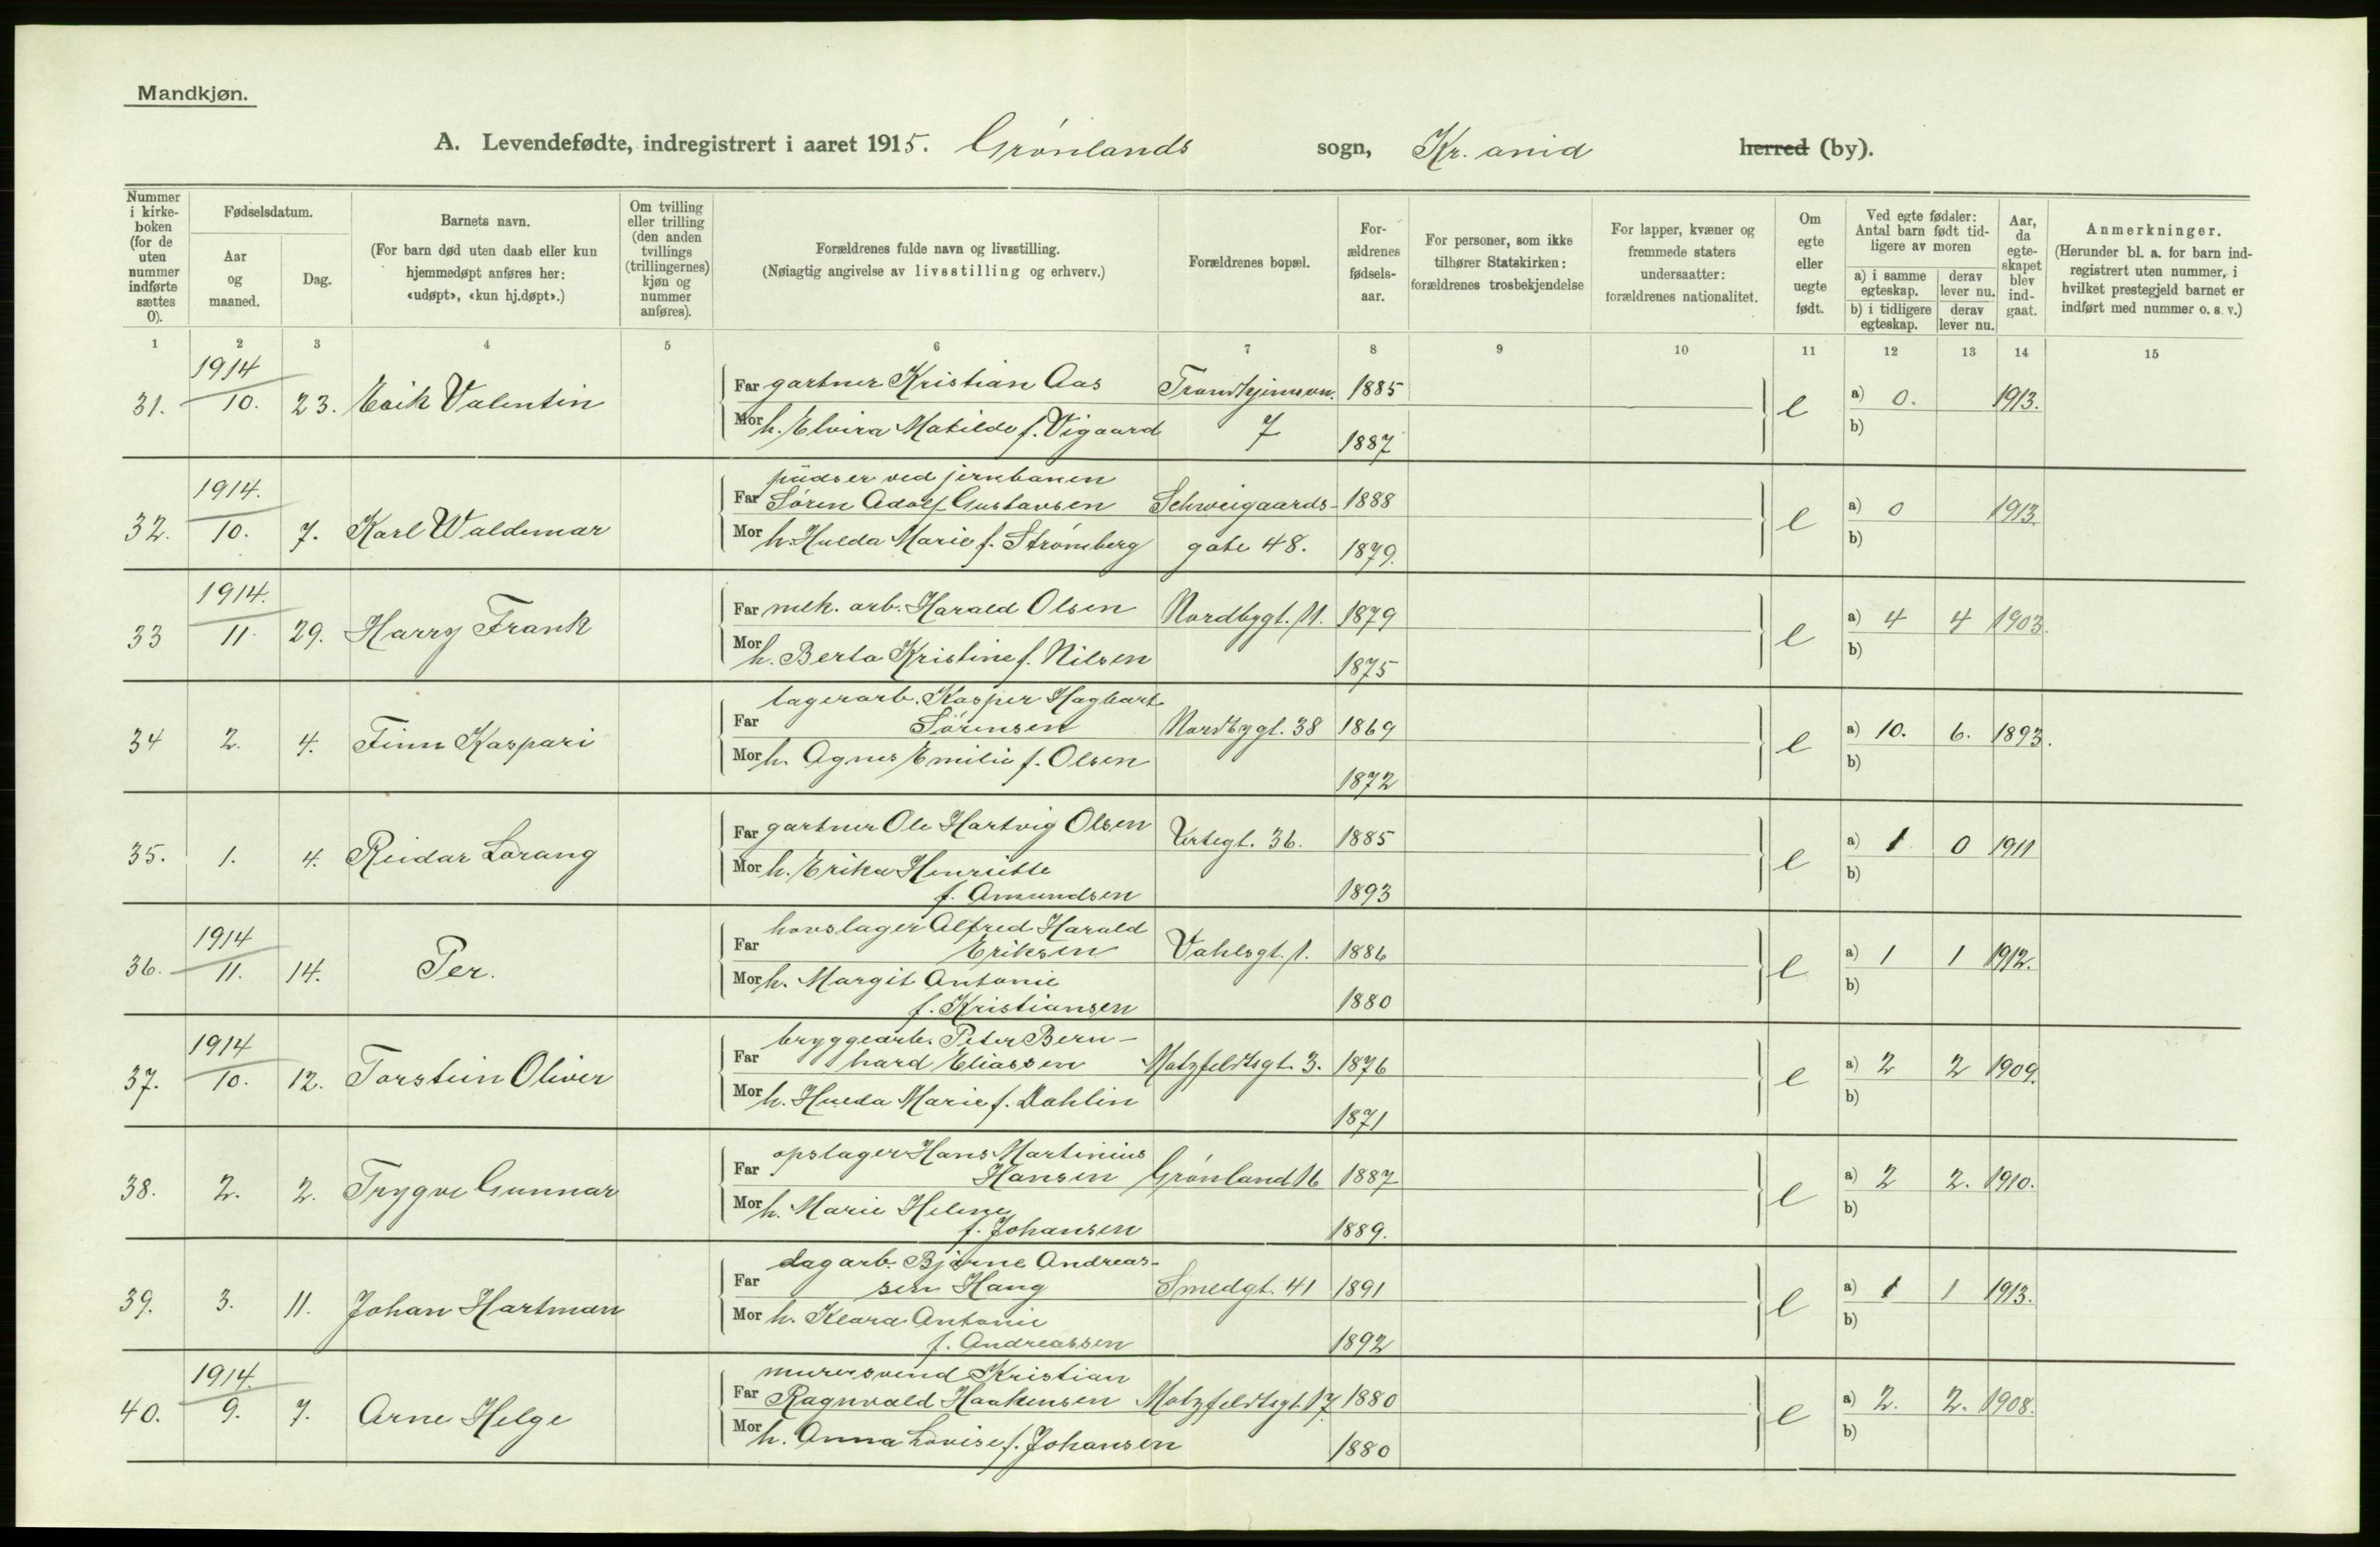 Mandkjøn.
A. Levendefødte, indregistrert i aaret 1915. Grønlands sogn, Kr.ania herred (by).
Nummer i kirke-boken (for de uten nummer indførte sættes 0).
Fødselsdatum.
Aar og maaned.
Dag.
Barnets navn.
(For barn død uten daab eller kun hjemmedøpt anføres her: «udøpt», «kun hj.døpt».)
Om tvilling eller trilling (den anden tvillings (trillingernes) kjøn og nummer anføres).
Forældrenes fulde navn og livsstilling.
(Nøiagtig angivelse av livsstilling og erhverv.)
Forældrenes bopæl.
For-ældrenes fødsels-aar.
For personer, som ikke tilhører Statskirken: forældrenes trosbekjendelse
For lapper, kvæner og fremmede staters undersaatter: forældrenes nationalitet.
Om egte eller uegte født.
Ved egte fødsler: Antal barn født tid-ligere av moren
a) i samme egteskap. derav lever nu.
b) i tidligere egteskap. derav lever nu.
Aar, da egte-skapet blev ind-gaat.
Anmerkninger.
(Herunder bl. a. for barn ind-registrert uten nummer, i hvilket prestegjeld barnet er indført med nummer o. s. v.)
1 2 3 4 5 6 7 8 9 10 11 12 13 14 15
31. 1914 10. 23. Erik Valentin Far gartner Kristian Aas Trondhjemsvn. 1885 e a) 0. 1913.
Mor h. Elvira Matilde f. Vigaard 7 1887 b)
pudser ved jernbanen
32. 1914. 10. 7. Karl Waldemar Far Søren Adolf Gustavsen Schweigaards- 1888 e a) 0 1913.
Mor h. Hulda Marie f. Strømberg gate 48. 1879. b)
33 1914. 11. 29. Harry Frank Far mek. arb. Harald Olsen Nordbygt. 11. 1879 e a) 4 4 1903.
Mor h. Berta Kristine f. Nilsen 1875 b)
lagerarb. Kasper Hagbart
34 2. 4. Finn Kaspari Far Sørensen Nordbygt. 38 1869 e a) 10. 6. 1893.
Mor h. Agnes Emilie f. Olsen 1872 b)
35. 1. 4. Reidar Lorang Far gartner Ole Hartvig Olsen Urtegt. 36. 1885 e a) 1 0 1911
Mor h. Erika Henriette b)
f. Amundsen 1893
hovslager Alfred Harald
36. 1914 11. 14. Per. Far Eriksen Vahlsgt. 1. 1886 e a) 1 1 1912.
Mor h. Margit Antonie b)
f. Kristiansen 1880
bryggearb. Peter Bern-
37. 1914 10. 12. Torstein Oliver Far hard Eliassen Motzfeldtsgt. 3. 1876 e a) 2 2 1909.
Mor h. Hulda Marie f. Dahlin 1871 b)
opslager Hans Martinius
38. 2. 2. Trygve Gunnar Far Hansen Grønland 16 1887 e a) 2 2. 1910.
Mor h. Marie Helene b)
f. Johansen 1889.
dagarb. Bjarne Andreas-
39. 3. 11. Johan Hartman Far sen Haug Smedgt. 41 1891 e a) 1 1 1913.
Mor h. Klara Antonie b)
f. Andreassen 1892
murersvend Kristian
40. 1914. 9. 7. Arne Helge Far Ragnvald Haakensen Motzfeldtsgt. 17. 1880 e a) 2. 2. 1908.
Mor h. Anna Lovise f. Johansen 1880 b)